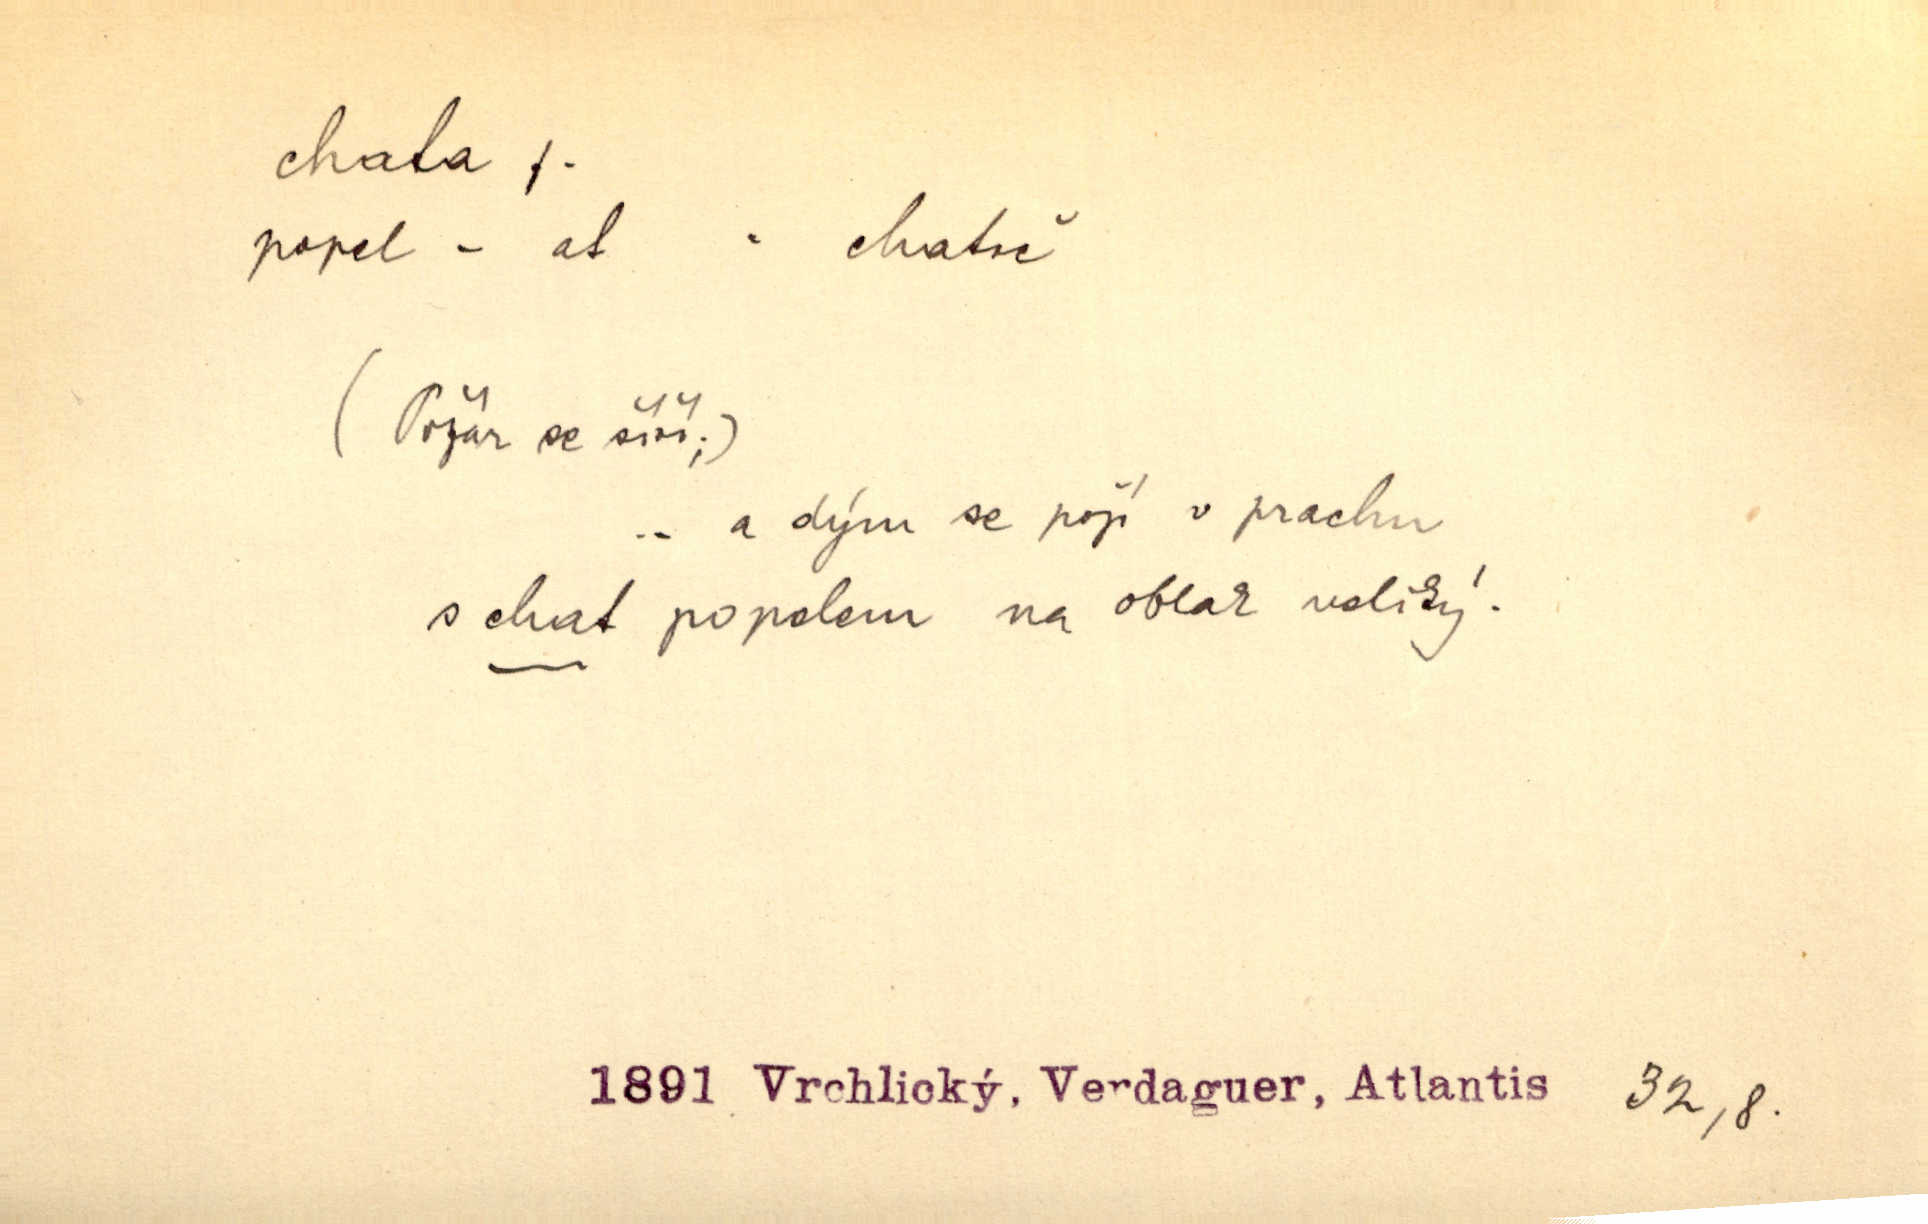 chata f.
popel - at " chatrč
( Požár se šíří; )
.. a dým se pojí v prachu
s chat popelem na oblak veliký.
1891 Vrchlický, Verdaguer, Atlantis 32,8.